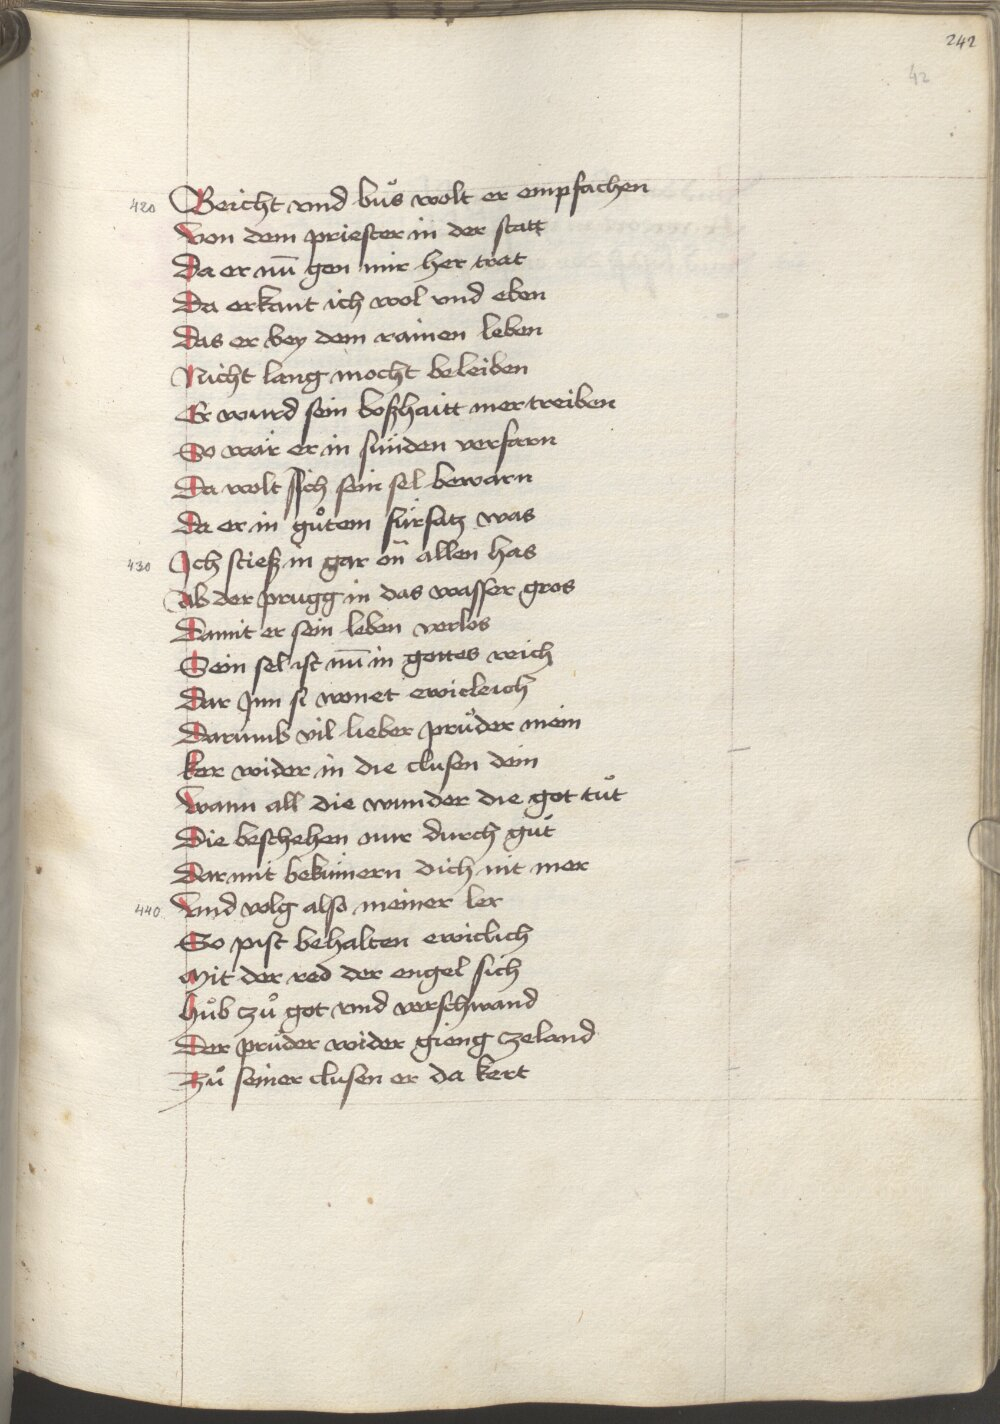 242
42
420 Beicht vnd bůs wolt er empfachen
Von dem priester in der statt
Da er nū gen mir her trat
Da erkant ich wol vnd eben
Das er bey dem rainen leben
Nicht lang mocht beleiben
Er wurd sein boßhaitt mer treiben
So wär er in sünden verfarn
Da wolt ich sein sel bewarn
Da er in gůtem fürsatz was
430 Ich stieß in gar on allen has
Ab der prugg in das wasser gros
Damit er sein leben verlos
Sein sel ist nū in gottes reich
Dar Jnn si wonet ewicleich
Darumb vil lieber průder mein
ker wider in die clusen dein
Wann all die wunder die got tůt
Die beschehen nur durch gůt
Dar mit bekümern dich nit mer
440 Vnd volg also meiner ler
So pist behalten ewiclich
Mit der red der engel sich
Hůb zů got vnd verschwand
Der průder wider gieng ze land
Zů seiner clusen er da kert